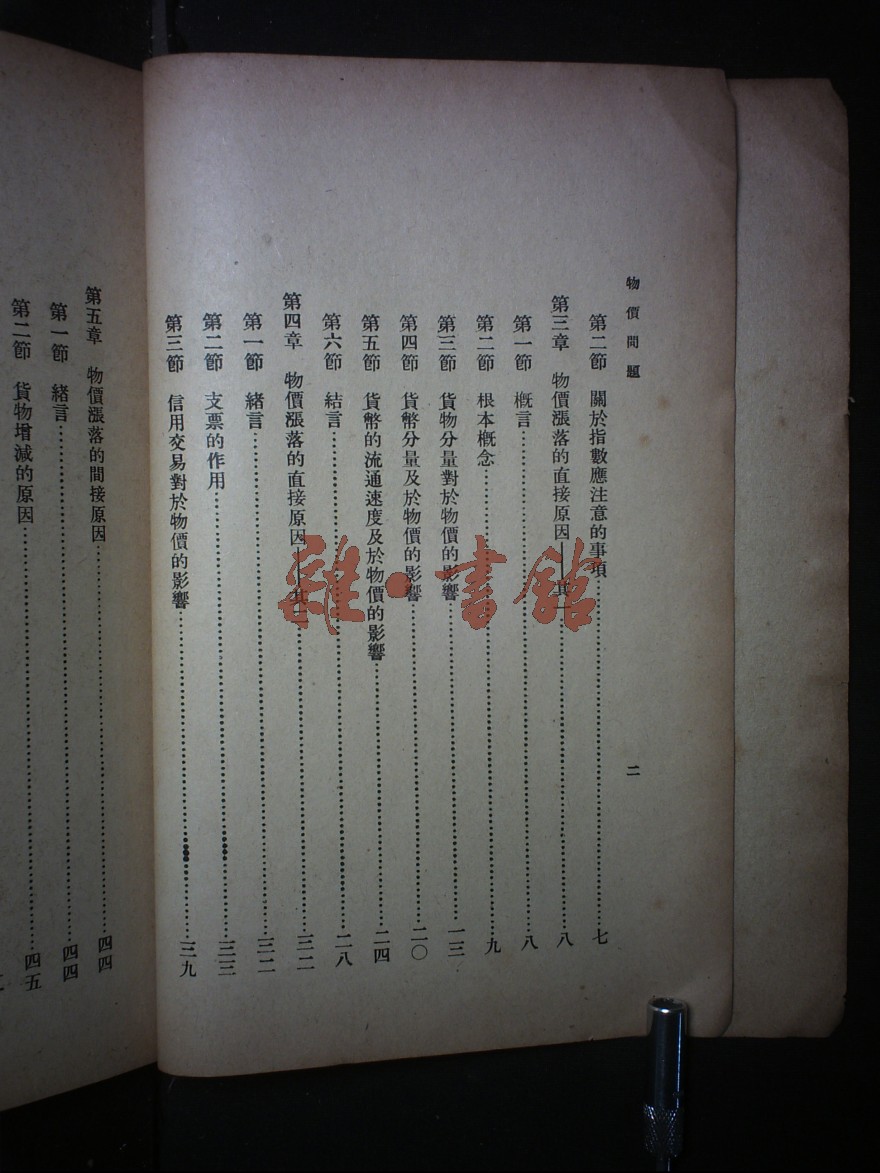 物價問題 二
第二節 關於指數應注意的事項 七
第三章 物價漲落的直接原因——其一 八
第一節 概言 八
第二節 根本概念 九
第三節 貨物分量對於物價的影響 一三
第四節 貨幣分量及於物價的影響 二〇
第五節 貨幣的流通速度及於物價的影響 二四
第六節 結言 二八
第四章 物價漲落的直接原因——其二 三二
第一節 緒言 三二
第二節 支票的作用 三三
第三節 信用交易對於物價的影響 三九
第五章 物價漲落的間接原因 四四
第一節 緒言 四四
第二節 貨物增減的原因 四五
雜·書館